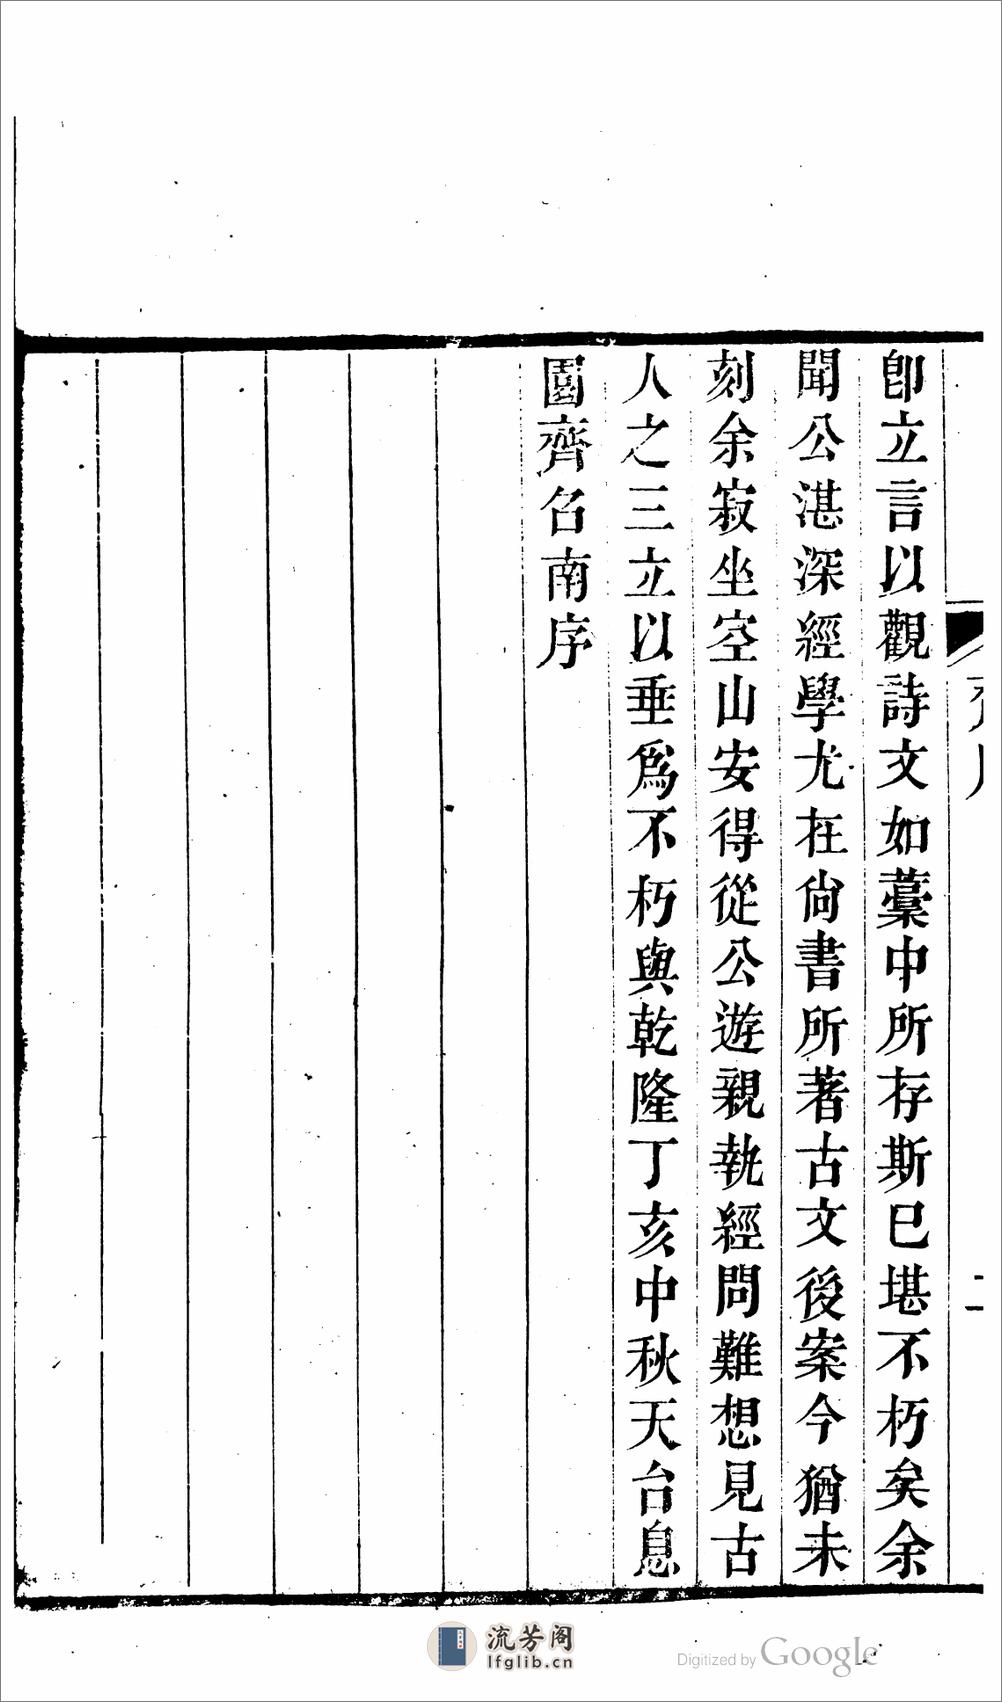 卽立言以觀詩文如藳中所存斯已堪不朽矣余
聞公湛深經學尤在尚書所著古文後案今猶未
刻余寂坐空山安得從公遊親執經問難想見古
人之三立以垂爲不朽與乾隆丁亥中秋天台息
園齊召南序
二
流芳阁
lfglib.cn
Digitized by Google